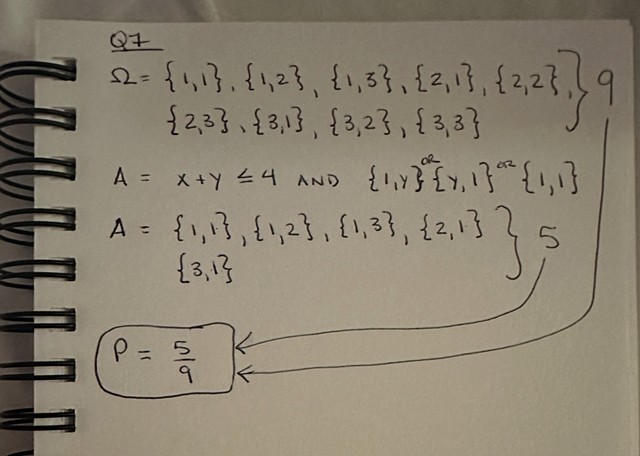 Q7
Ω = {1,1}, {1,2}, {1,3}, {2,1}, {2,2}, } 9
{2,3}, {3,1}, {3,2}, {3,3}
A = x+y ≤ 4 AND {1,y} OR {y,1} OR {1,1}
A = {1,1}, {1,2}, {1,3}, {2,1} } 5
{3,1}
P = 5/9